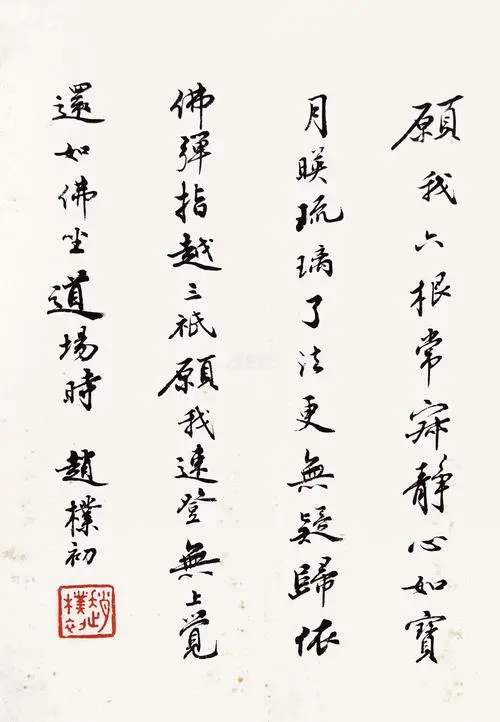 願我六根常寂静心如寶
月暎琉璃了法更無疑歸依
佛彈指越三祇願我速登無上覺
還如佛坐道場時 趙樸初
趙樸初